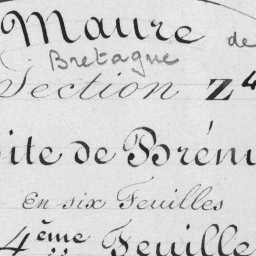 Maure de
Bretagne
Section Z4
ite de Brém
En six Feuilles
4ème Feuille